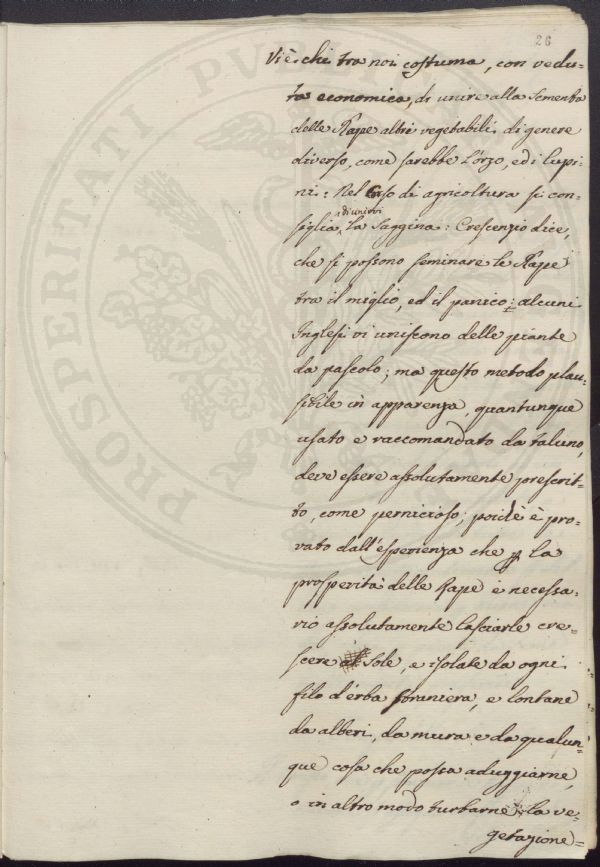 26
Vi è chi tra noi costuma, con vedu=
ta economica, di unire alla Sementa
delle Rape altri vegetabili di genere
diverso, come sarebbe l'orzo, ed i lupi=
ni: Nel Corso di agricoltura si con=
siglia di unirvi la Saggina: Crescenzio dice,
che si possono seminare le Rape
tra il miglio, ed il panico; alcuni
Inglesi vi uniscono delle piante
da pascolo; ma questo metodo plau=
sibile in apparenza, quantunque
usato e raccomandato da taluno,
deve essere assolutamente proscrit=
to, come pernicioso; poichè è pro=
vato dall'esperienza che p la
prosperità delle Rape è necessa=
rio assolutamente lasciarle cre=
scere Sole, e isolate da ogni
filo d'erba straniera, e lontane
da alberi, da mura e da qualun=
que cosa che possa aduggiarne,
o in altro modo turbarne la ve=
getazione=
PROSPERITATI PUBLICAE